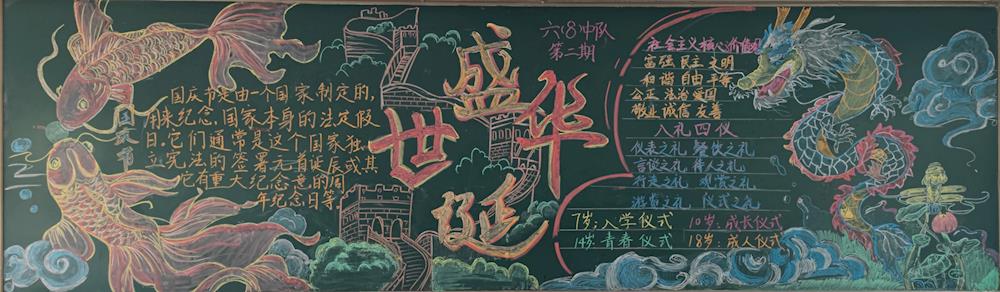 国庆节
国庆节是由一个国家制定的,
用来纪念国家本身的法定假
日。它们通常是这个国家独
立、宪法的签署、元首诞辰或其
它有重大纪念意的周
年纪念日等
盛
世
华
诞
六(8)中队
第二期
社会主义核心价值观
富强 民主 文明
和谐 自由 平等
公正 法治 爱国
敬业 诚信 友善
八礼四仪
仪表之礼 餐饮之礼
言谈之礼 待人之礼
行走之礼 观赏之礼
游览之礼 仪式之礼
7岁:入学仪式 10岁:成长仪式
14岁青春仪式 18岁:成人仪式